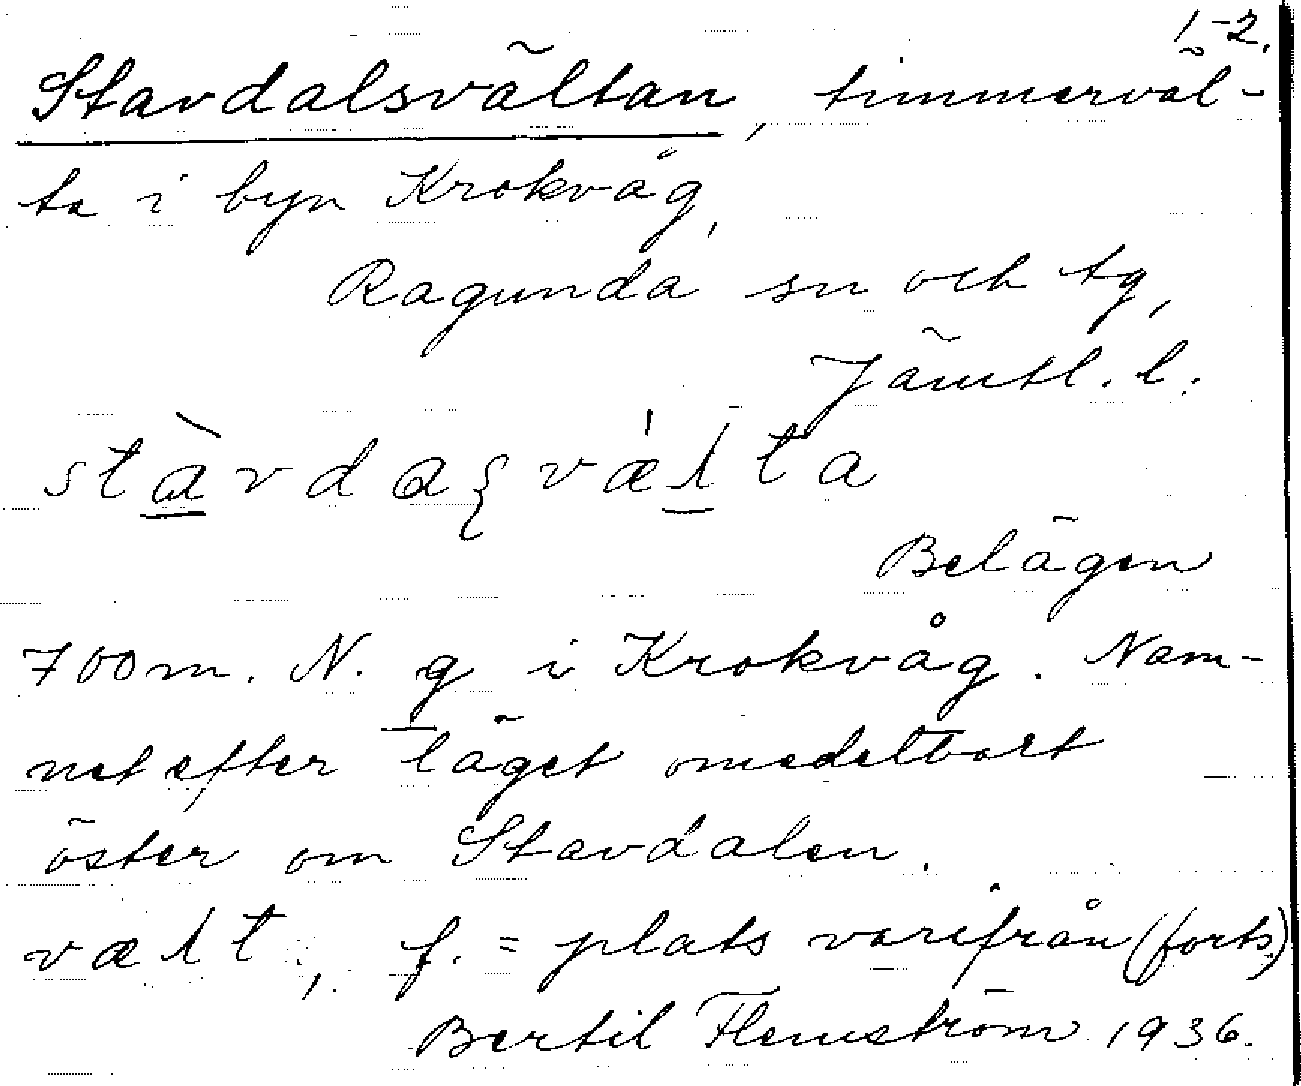 1-2.
Stavdalsvältan, timmerväl-
ta i byn Krokvåg,
Ragunda sn och tg,
Jämtl. l.
Belägen
700 m. N. g i Krokvåg. Nam-
net efter läget omedelbart
öster om Stavdalen.
f. = plats varifrån (forts.)
Bertil Flemström 1936.